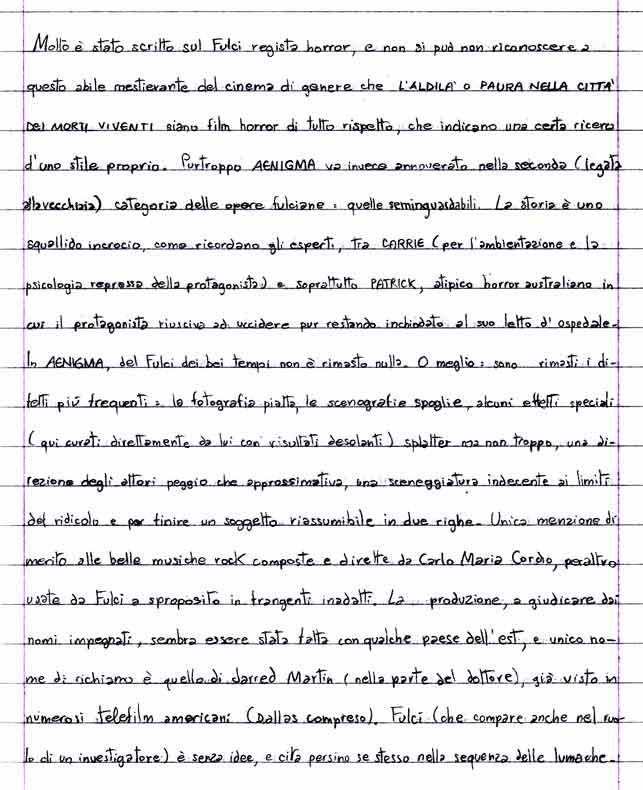 Molto è stato scritto sul Fulci regista horror, e non si può non riconoscere a
questo abile mestierante del cinema di genere che L'ALDILA' o PAURA NELLA CITTA'
DEI MORTI VIVENTI siano film horror di tutto rispetto, che indicano una certa ricerca
d'uno stile proprio. Purtroppo AENIGMA va invece annoverato nella seconda (legata
alla vecchiaia) categoria delle opere fulciane: quelle seminguardabili. La storia è uno
squallido incrocio, come ricordano gli esperti, tra CARRIE (per l'ambientazione e la
psicologia repressa della protagonista) e soprattutto PATRICK, atipico horror australiano in
cui il protagonista riusciva ad uccidere pur restando inchiodato al suo letto d'ospedale.
In AENIGMA, del Fulci dei bei tempi non è rimasto nulla. O meglio: sono rimasti i di-
fetti più frequenti: la fotografia piatta, le scenografie spoglie, alcuni effetti speciali
(qui curati direttamente da lui con risultati desolanti) splatter ma non troppo, una di-
rezione degli attori peggio che approssimativa, una sceneggiatura indecente ai limiti
del ridicolo e per finire un soggetto riassumibile in due righe. Unica menzione di
merito alle belle musiche rock composte e dirette da Carlo Maria Cordio, peraltro
usate da Fulci a sproposito in frangenti inadatti. La produzione, a giudicare dai
nomi impegnati, sembra essere stata fatta con qualche paese dell'est, e unico no-
me di richiamo è quello di Jarred Martin (nella parte del dottore), già visto in
numerosi telefilm americani (Dallas compreso). Fulci (che compare anche nel ruo-
lo di un investigatore) è senza idee, e cita persino se stesso nella sequenza delle lumache.